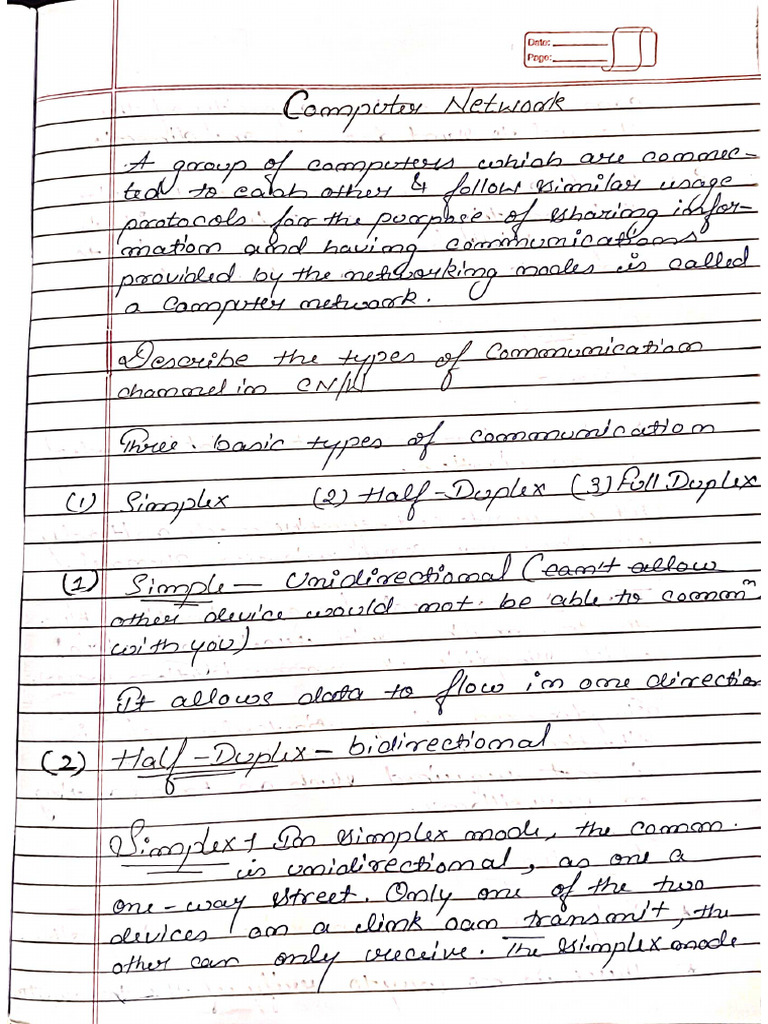 Date:
Page:
Computer Network
A group of computers which are connec-
ted to each other & follow similar usage
protocols for the purpose of sharing infor-
mation and having communications
provided by the networking nodes is called
a Computer network.
Describe the types of Communication
channel in CN/
Three basic types of communication
(1) Simplex (2) Half-Duplex (3) Full Duplex
(1) Simple — Unidirectional (can't allow
other device would not be able to commn
with you)
It allows data to flow in one direction
(2) Half-Duplex - bidirectional
Simplex → In simplex mode, the comm.
is unidirectional, as one a
one-way street. Only one of the two
devices on a link can transmit, the
other can only receive. The simplex mode